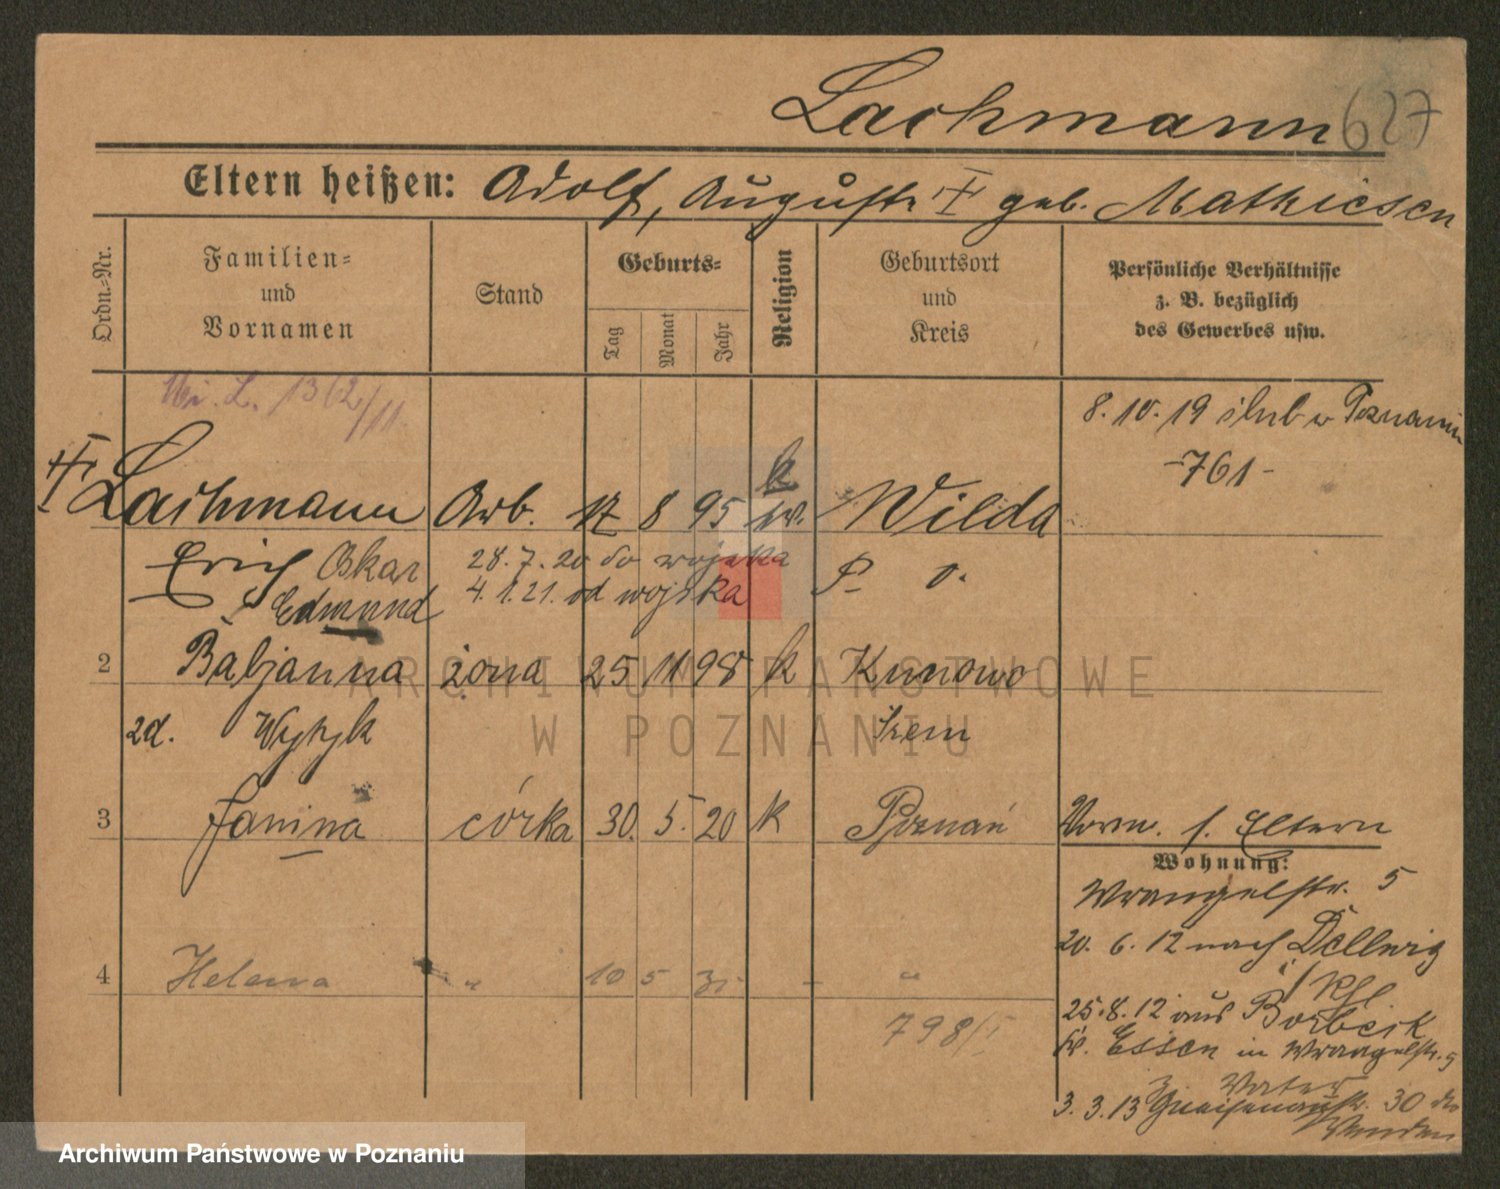 Lachmann 627
Eltern heißen: Adolf, Auguste geb. Mathiesen
Ordn.-Nr.
Familien-
und
Vornamen
Stand
Geburts-
Tag
Monat
Jahr
Religion
Geburtsort
und
Kreis
Persönliche Verhältnisse
z. B. bezüglich
des Gewerbes usw.
1362/11.
8. 10. 19 ślub w Poznaniu
-761-
k
Lachmann Arb. 17 8 95 ev. Wilda
Erich Oskar 28. 7. 20 do wojska P. O.
Edmund 4. 1. 21. od wojska
2 Babjanna żona 25 11 98 k Kunowo
zd. Wyzyk Śrem
3 Janina córka 30. 5. 20 k Poznań Vorm. s. Eltern
Wohnung:
Wrangelstr. 5
20. 6. 12 nach Dellwig
4 Helena " 10 5 "
25. 8. 12 aus Borbeck
798/I
Kr. Essen in Wrangelstr. 5
Vater
3. 3. 13 Gneisenaustr. 30
ARCHIWUM PAŃSTWOWE
W POZNANIU
Archiwum Państwowe w Poznaniu